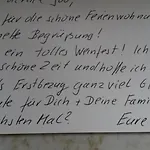 für die schöne Ferienwohnun
nette Begrüßung!
ein tolles Weinfest! Ich
schöne Zeit, und hoffe ich
Erstbezug ganz viel
für Dich + Deine Fami
chsten Mal? Eure